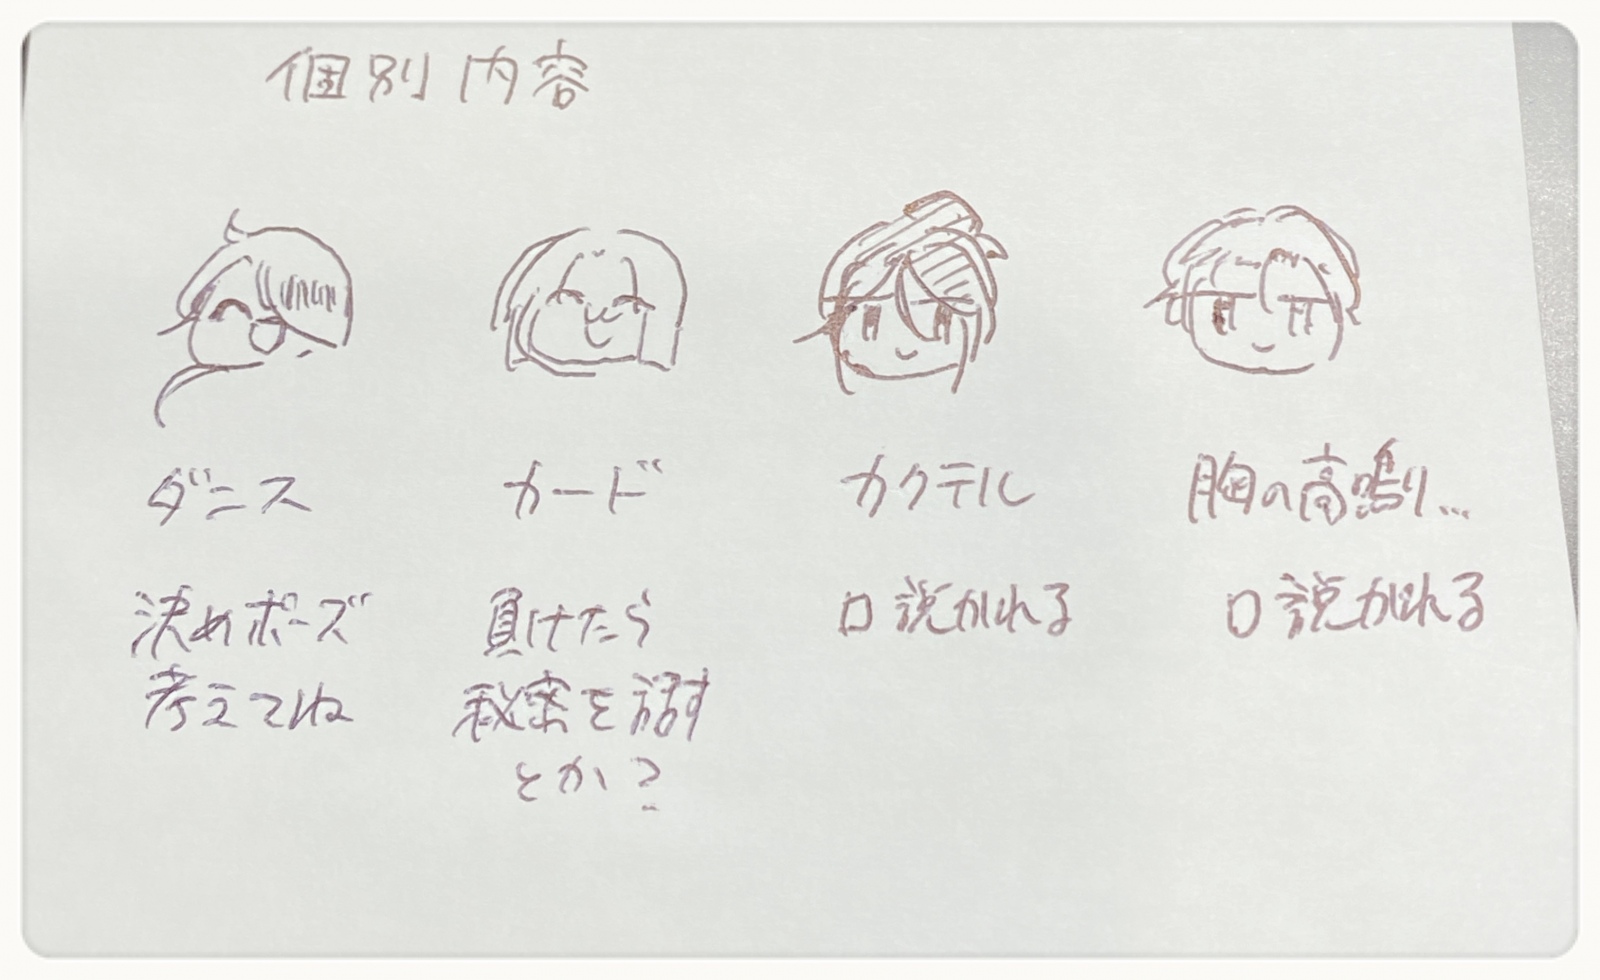 個別内容
ダンス
カード
カクテル
胸の高鳴り…
決めポーズ
考えてね
負けたら
秘密を話す
とか?
口説かれる
口説かれる